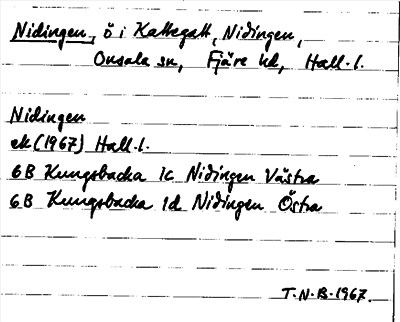 Nidingen, ö i Kattegatt, Nidingen,
Onsala sn, Fjäre hd, Hall. l.
Nidingen
ek (1967) Hall. l.
6B Kungsbacka 1c Nidingen Västra
6B Kungsbacka 1d Nidingen Östra
T.N.B. 1967.